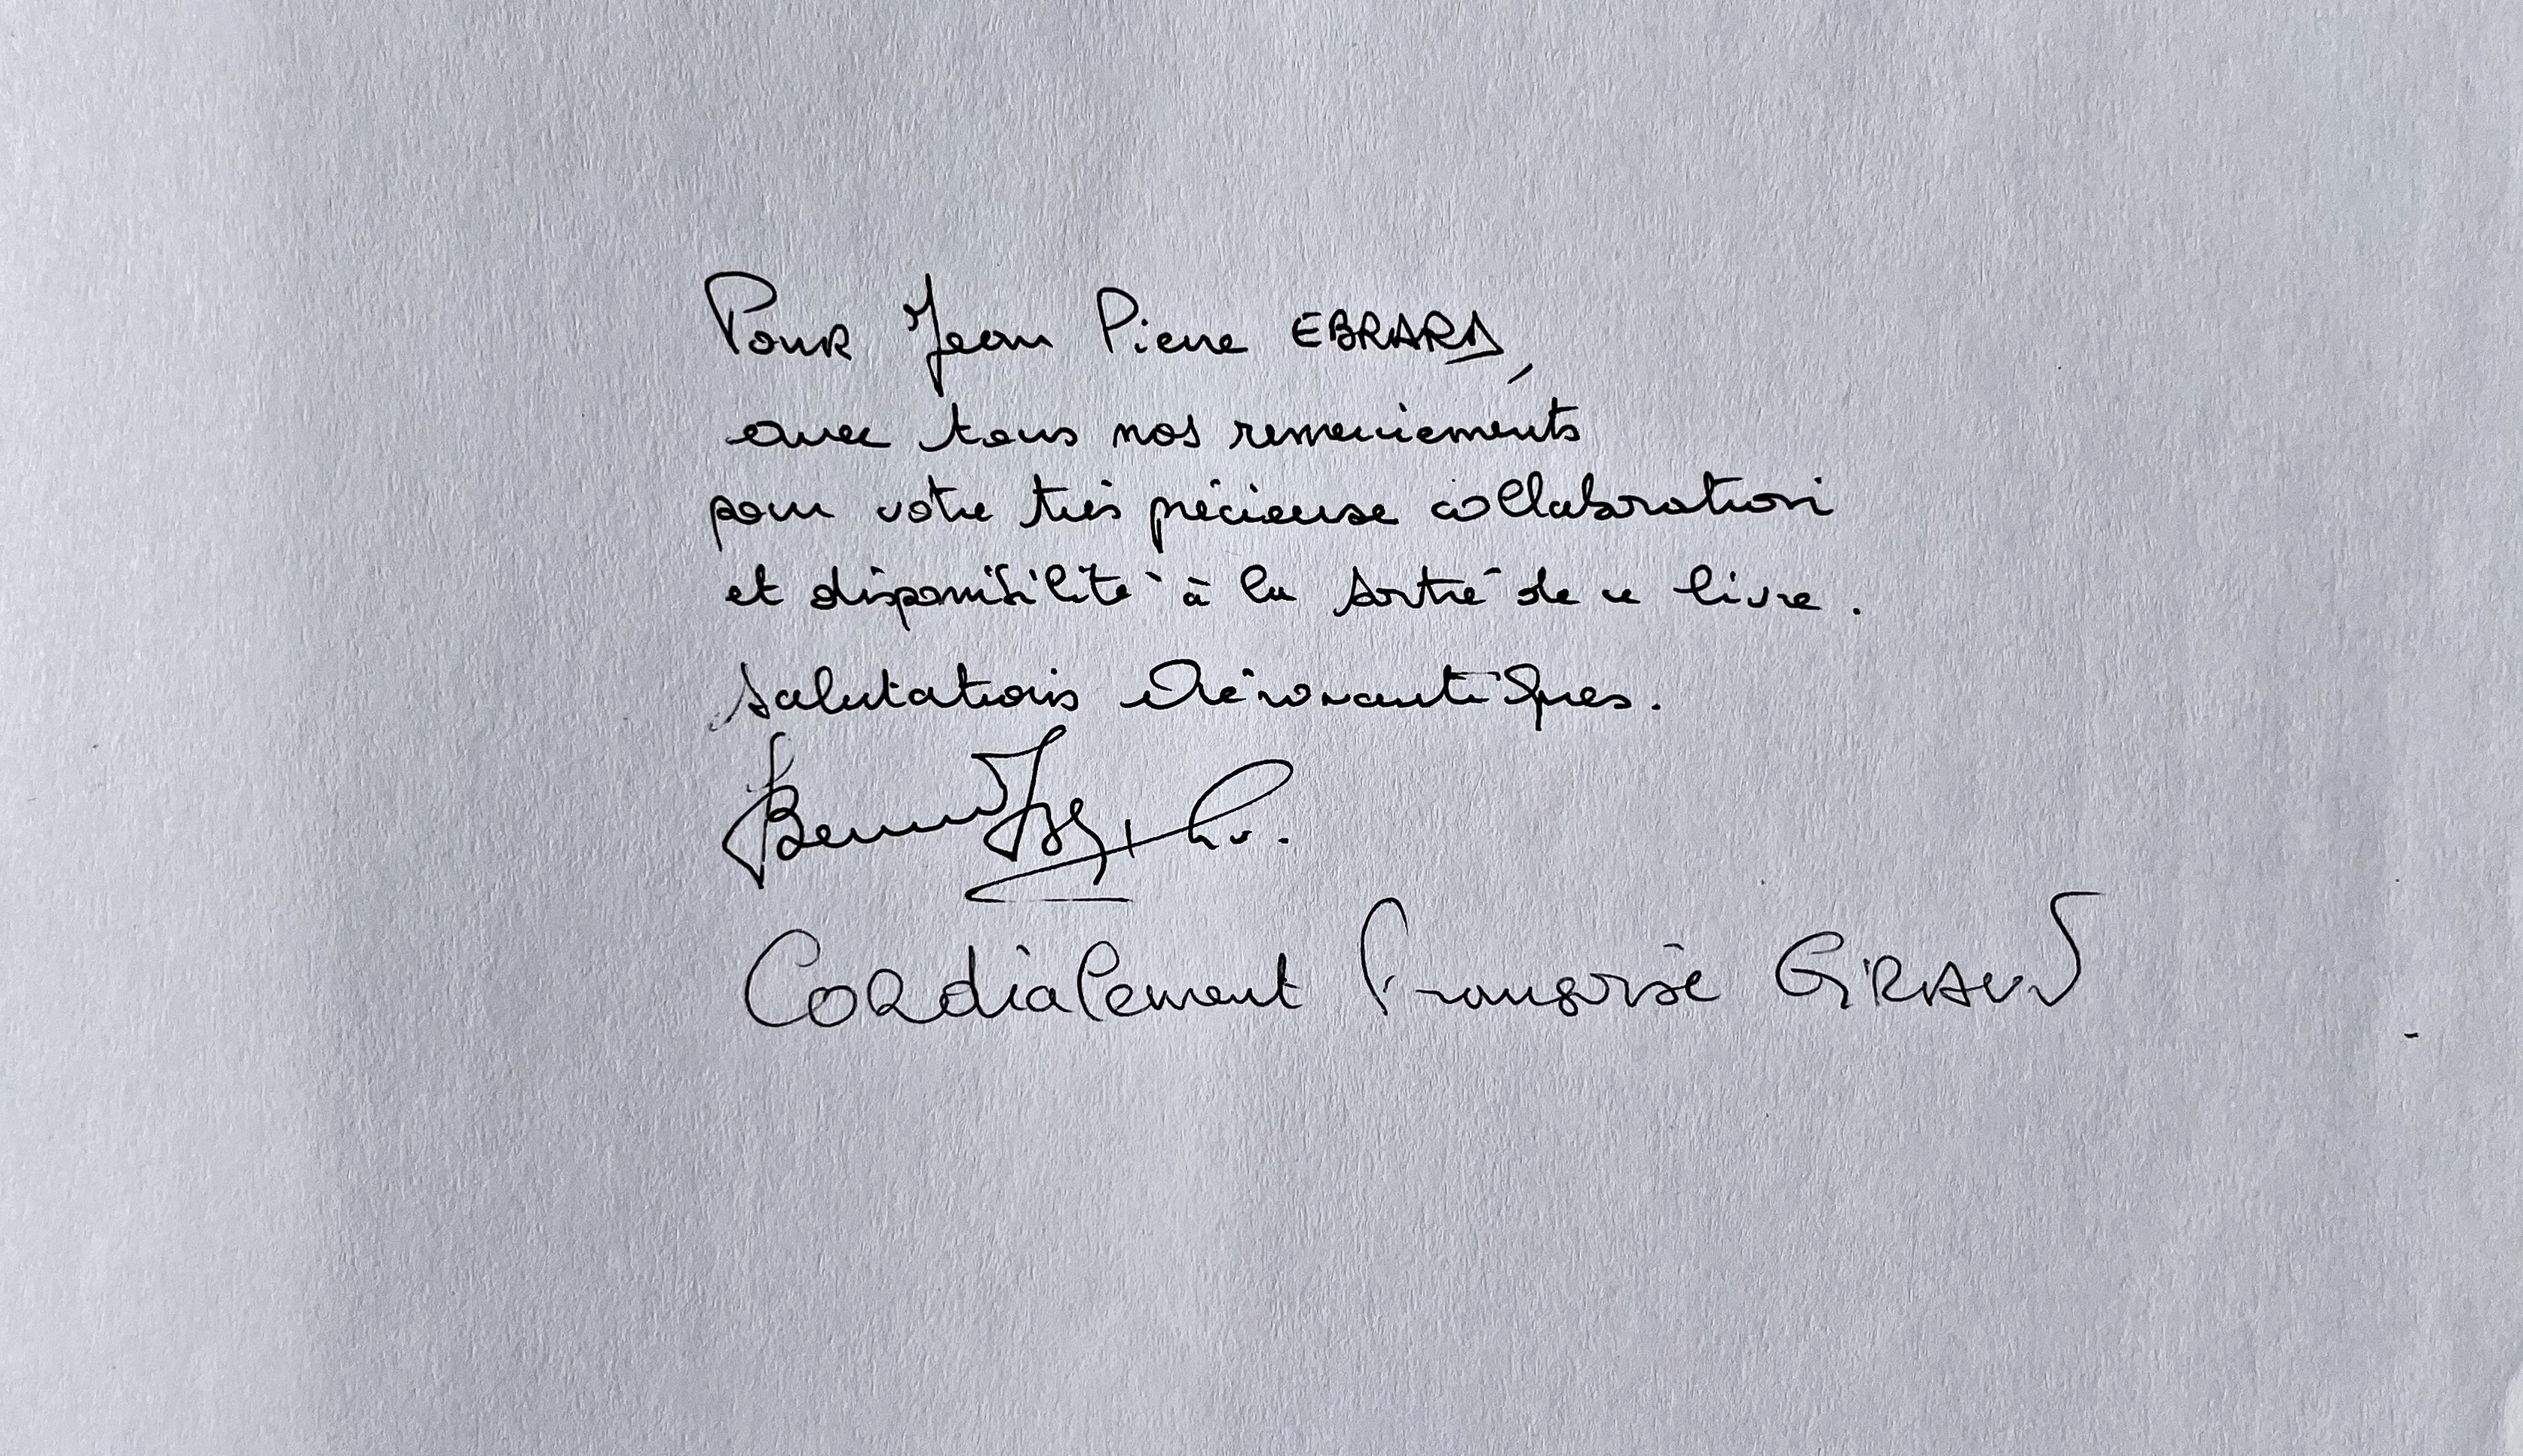 Pour Jean Pierre EBRARD,
avec tous nos remerciements
pour votre très précieuse collaboration
et disponibilité à la sortie de ce livre.
Salutations Aéronautiques.
Cordialement Françoise GIRAUD